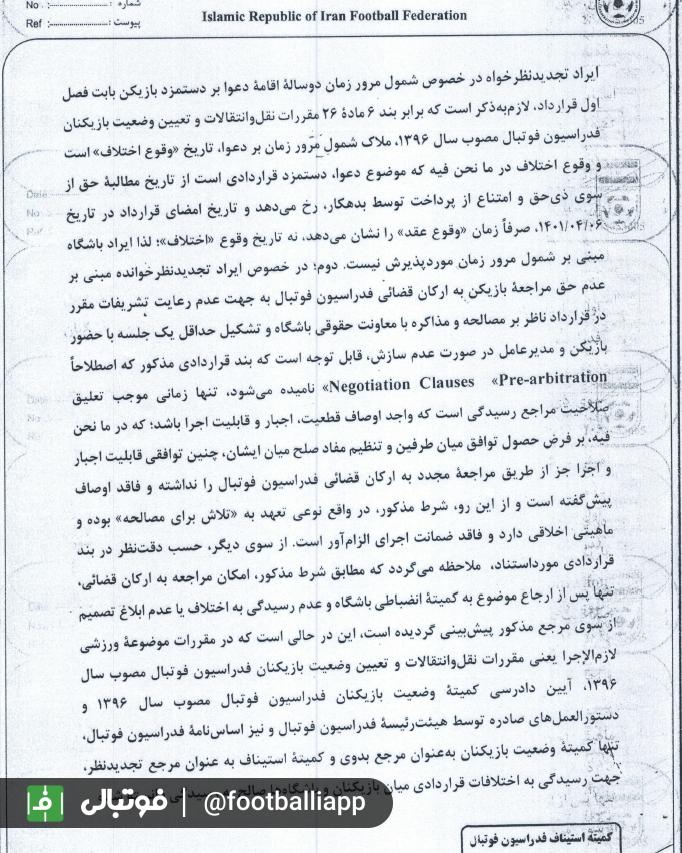 No. :
شماره :
Ref :
پیوست :
Islamic Republic of Iran Football Federation
ایراد تجدیدنظرخواه در خصوص شمول مرور زمان دوسالهٔ اقامهٔ دعوا بر دستمزد بازیکن بابت فصل
اول قرارداد، لازم‌به‌ذکر است که برابر بند ۶ مادهٔ ۲۶ مقررات نقل‌وانتقالات و تعیین وضعیت بازیکنان
فدراسیون فوتبال مصوب سال ۱۳۹۶، ملاک شمول مرور زمان بر دعوا، تاریخ «وقوع اختلاف» است
و وقوع اختلاف در ما نحن فیه که موضوع دعوا، دستمزد قراردادی است از تاریخ مطالبهٔ حق از
سوی ذی‌حق و امتناع از پرداخت توسط بدهکار، رخ می‌دهد و تاریخ امضای قرارداد در تاریخ
۱۴۰۱/۰۴/۰۶، صرفاً زمان «وقوع عقد» را نشان می‌دهد، نه تاریخ وقوع «اختلاف»؛ لذا ایراد باشگاه
مبنی بر شمول مرور زمان موردپذیرش نیست. دوم؛ در خصوص ایراد تجدیدنظرخوانده مبنی بر
عدم حق مراجعهٔ بازیکن به ارکان قضائی فدراسیون فوتبال به جهت عدم رعایت تشریفات مقرر
در قرارداد ناظر بر مصالحه و مذاکره با معاونت حقوقی باشگاه و تشکیل حداقل یک جلسه با حضور
بازیکن و مدیرعامل در صورت عدم سازش، قابل توجه است که بند قراردادی مذکور که اصطلاحاً
Negotiation Clauses «Pre-arbitration» نامیده می‌شود، تنها زمانی موجب تعلیق
صلاحیت مراجع رسیدگی است که واجد اوصاف قطعیت، اجبار و قابلیت اجرا باشد؛ که در ما نحن
فیه، بر فرض حصول توافق میان طرفین و تنظیم مفاد صلح میان ایشان، چنین توافقی قابلیت اجبار
و اجرا جز از طریق مراجعهٔ مجدد به ارکان قضائی فدراسیون فوتبال را نداشته و فاقد اوصاف
پیش‌گفته است و از این رو، شرط مذکور، در واقع نوعی تعهد به «تلاش برای مصالحه» بوده و
ماهیتی اخلاقی دارد و فاقد ضمانت اجرای الزام‌آور است. از سوی دیگر، حسب دقت‌نظر در بند
قراردادی مورداستناد، ملاحظه می‌گردد که مطابق شرط مذکور، امکان مراجعه به ارکان قضائی،
تنها پس از ارجاع موضوع به کمیتهٔ انضباطی باشگاه و عدم رسیدگی به اختلاف یا عدم ابلاغ تصمیم
از سوی مرجع مذکور پیش‌بینی گردیده است، این در حالی است که در مقررات موضوعهٔ ورزشی
لازم‌الاجرا یعنی مقررات نقل‌وانتقالات و تعیین وضعیت بازیکنان فدراسیون فوتبال مصوب سال
۱۳۹۶، آیین دادرسی کمیتهٔ وضعیت بازیکنان فدراسیون فوتبال مصوب سال ۱۳۹۶ و
دستورالعمل‌های صادره توسط هیئت‌رئیسهٔ فدراسیون فوتبال و نیز اساس‌نامهٔ فدراسیون فوتبال،
تنها کمیتهٔ وضعیت بازیکنان به‌عنوان مرجع بدوی و کمیتهٔ استیناف به عنوان مرجع تجدیدنظر،
جهت رسیدگی به اختلافات قراردادی میان بازیکنان و باشگاه‌ها صالح به رسیدگی
فوتبالی | @footballiapp
کمیته استیناف فدراسیون فوتبال